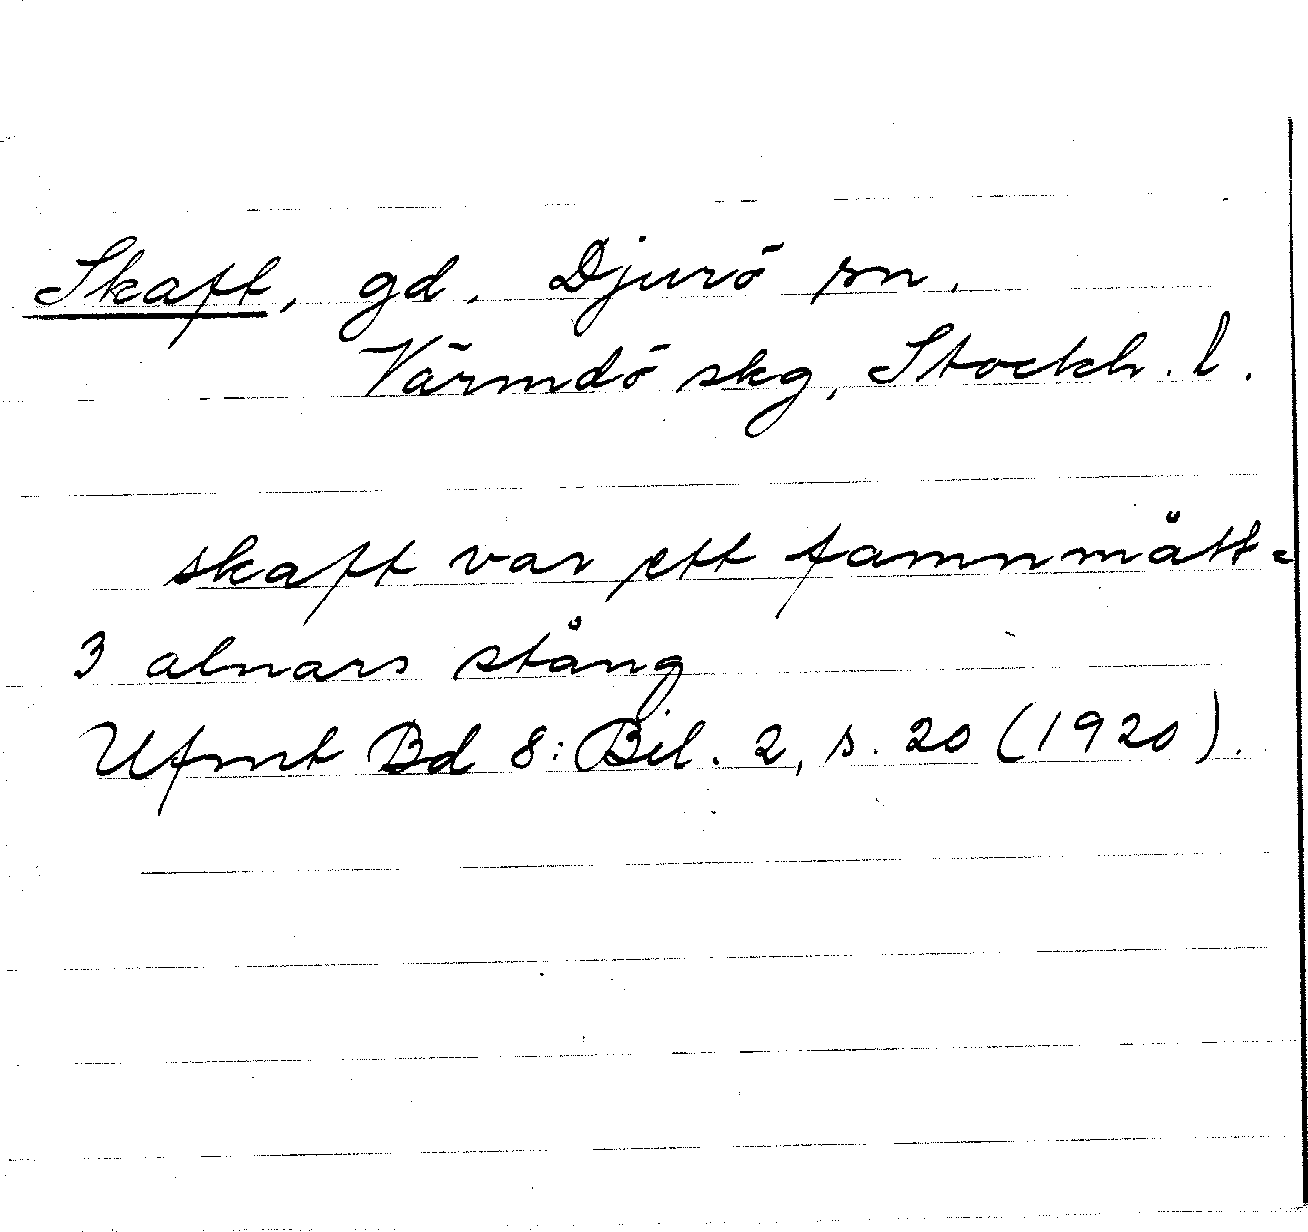 Skaft, gd. Djurö sn.
Värmdö skg, Stockh. l.
skaft var ett famnmått =
3 alnars stång
Ufmt Bd 8: Bil. 2, s. 20 (1920).